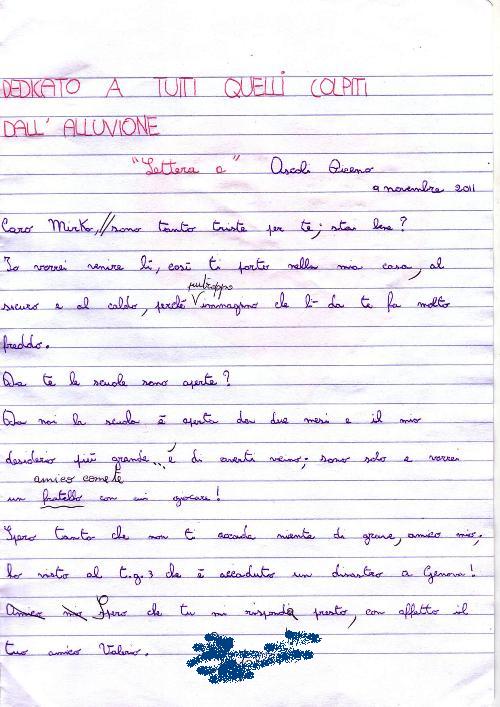 DEDICATO A TUTTI QUELLI COLPITI
DALL' ALLUVIONE
"Lettera a" Ascoli Piceno
9 novembre 2011
Caro Mirko, // sono tanto triste per te; stai bene?
Io vorrei venire lì, così ti porto nella mia casa, al
purtroppo
sicuro e al caldo, perché immagino che lì da te fa molto
freddo.
Da te le scuole sono aperte?
Da noi la scuola è aperta da due mesi e il mio
desiderio più grande... è di averti vicino; sono solo e vorrei
amico come te
un fratello con cui giocare!
Spero tanto che non ti accada niente di grave, amico mio;
ho visto al t.g.3 che è accaduto un disastro a Genova!
Amico mio Spero che tu mi risponda presto, con affetto il
tuo amico Valerio.